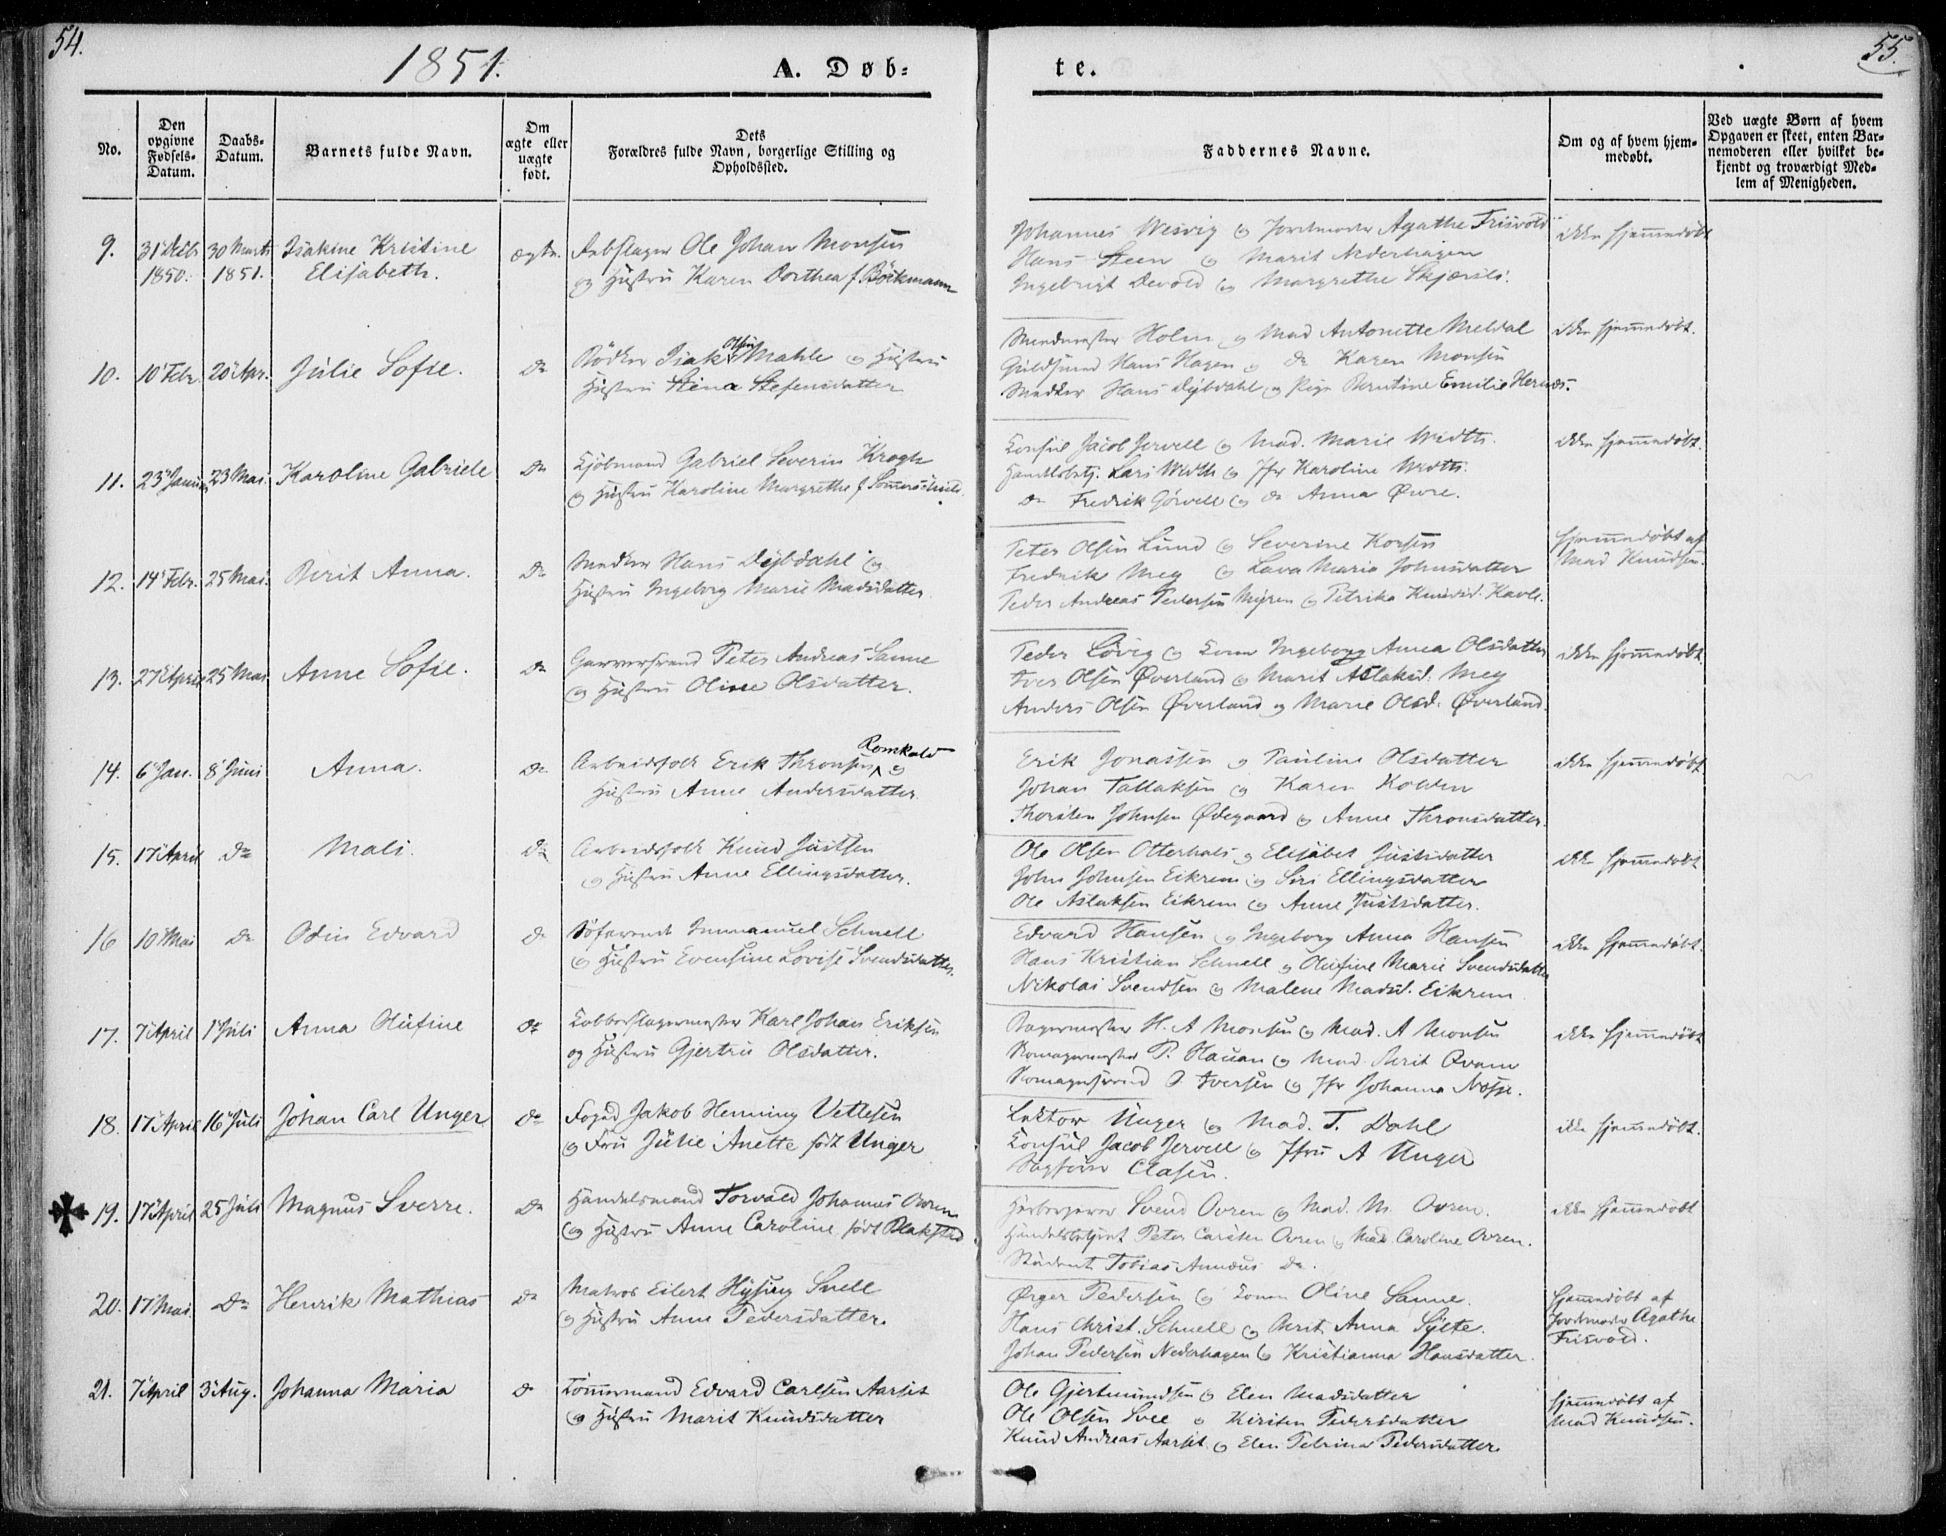 54.
1851.
A. Døb-
te.
55.
No.
Den opgivne Fødsels-Datum.
Daabs-Datum.
Barnets fulde Navn.
Om ægte eller uægte født.
Dets Forældres fulde Navn, borgerlige Stilling og Opholdssted.
Faddernes Navne.
Om og af hvem hjem-medøbt.
Ved uægte Børn af hvem Opgaven er skeet, enten Bar-nemoderen eller hvilket be-kjendt og troværdigt Med-lem af Menigheden.
9. 31 Decbr 1850. 30 Marts 1851. Isakine Kristine Elisabeth. ægte.
Ole Johan Monsen
og Hustru Karen Dorthea f. Böckmann
Johannes Wesvig og Jordmoder Agathe Frisvold
Hans Steen og Marit Nederhagen
Ingebrigt Devold og Margrethe
ikke hjemmedøbt
10. 10 Febr. 20 Apr. Julie Sofie. Do
Bödker Isak Olsen Mahle og Hustru
Hustru Stina Stefensdatter
Holm og Mad Antonette Meldal
Guldsmed Hans Hagen og do Karen Monsen
Snedker Hans Dybdahl og Pige Berntine Emilie Hernæs.
ikke hjemmedøbt.
11. 23 Januar 23 Mai. Karoline Gabriele Do
Kjöbmand Gabriel Severin Krogh
og Hustru Karoline Margrethe f. Sommerschield.
Consul Jacob Jervell og Mad. Marie Width.
Handelsbetj. Lars Width og Jfr Karoline Width.
do Fredrik Jervell og do Anna Øvre.
ikke hjemmedøbt.
12. 14 Febr. 25 Mai. Berit Anna. Do
Snedker Hans Dybdahl og
Hustru Ingeborg Marie Madsdatter.
Peter Olsen Lund og Severine Korsen
Fredrik Meg og Lava Maria Johnsdatter
Peder Andreas Pedersen Myren og Petrika Knudsd.
hjemmedøbt af
Mad Knudsen.
13. 27 April 25 Mai Anne Sofie. Do
Garversvend Peter Andreas Sanne
og Hustru Oline Olsdatter.
Peder Lövig og Kone Ingeborg Anna Olsdatter
Iver Olsen Øverland og Marit Aslaksd. Meg
Anders Olsen Øverland og Marie Olsd. Øverland.
ikke hjemmedøbt
14. 6 Jan. 8 Juni Anna. Do
Arbeidsfolk Erik Thronsen Romkald og
Hustru Anne Andersdatter.
Erik Jonassen og Pauline Olsdatter
Johan Tallaksen og Karen Kolden
Thorsten Johnsen Ødegaard og Anne Thronsdatter.
ikke hjemmedøbt
15. 17 April Do Mali. Do
Arbeidsfolk Knud Justsen
og Hustru Anne Ellingsdatter.
Ole Olsen Otterhals og Elisabet Justsdatter
John Johnsen Eikrem og Siri Ellingsdatter
Ole Aslaksen Eikrem og Anne Justsdatter.
ikke hjemmedøbt
16 10 Mai Do Odin Edvard Do
Söfarende Immanuel Schnell
og Hustru Evensine Lovise Svendsdatter.
Edvard Hansen og Ingeborg Anna Hansen
Hans Kristian Schnell og Olufine Marie Svendsdatter
Nikolai Svendsen og Malene Madsd. Eikrem
ikke hjemmedøbt.
17. 7 April 1 Juli Anna Olufine Do
Kobberslagermester Karl Johan Eriksen
og Hustru Gjertru Olsdatter.
Bagermester H. A Monsen og Mad. A Monsen
Skomagermester P. Hauan og Mad. Berit Qvam
Skomagersvend O Iversen og Jfr Johanna
ikke hjemmedøbt
18. 17 April 16 Juli Johan Carl Unger Do
Foged Jakob Henning Vetlesen
og Fru Julie Anette født Unger
Lektor Unger og Mad. T. Dahl
Konsul Jacob Jervell og Jfru A Unger
Sagförer Clasen.
ikke hjemmedøbt.
19. 17 April 25 Juli Magnus Sverre. Do
Handelsmand Torvald Johannes Owren
og Hustru Anne Caroline født Blakstad
Svend Owren og Mad. M. Owren.
Handelsbetjent Peter Carsten Owren og Mad. Caroline Owren.
Student Tobias Do.
ikke hjemmedøbt
20. 17 Mai Do Henrik Mathias Do
Matros Eilert Hysing Snell
og Hustru Anne Pedersdatter.
Ørger Pedersen og Konen Oline Sanne.
Hans Christ. Schnell og Berit Anna Sylte.
Johan Pedersen Nederhagen og Kristianna Hansdatter.
hjemmedøbt af
Jordmoder Agathe
Frisvold.
21. 7 April 3 Aug. Johanna Maria Do
Tömmermand Edvard Carlsen Aarset
og Hustru Marit Knudsdatter
Ole Gjertmundsen og Elen Madsdatter
Ole Olsen Svee og Kirsten Pedersdatter
Knud Andreas Aarset og Elen Petrina Pedersdatter
hjemmedøbt af
Mad Knudsen.